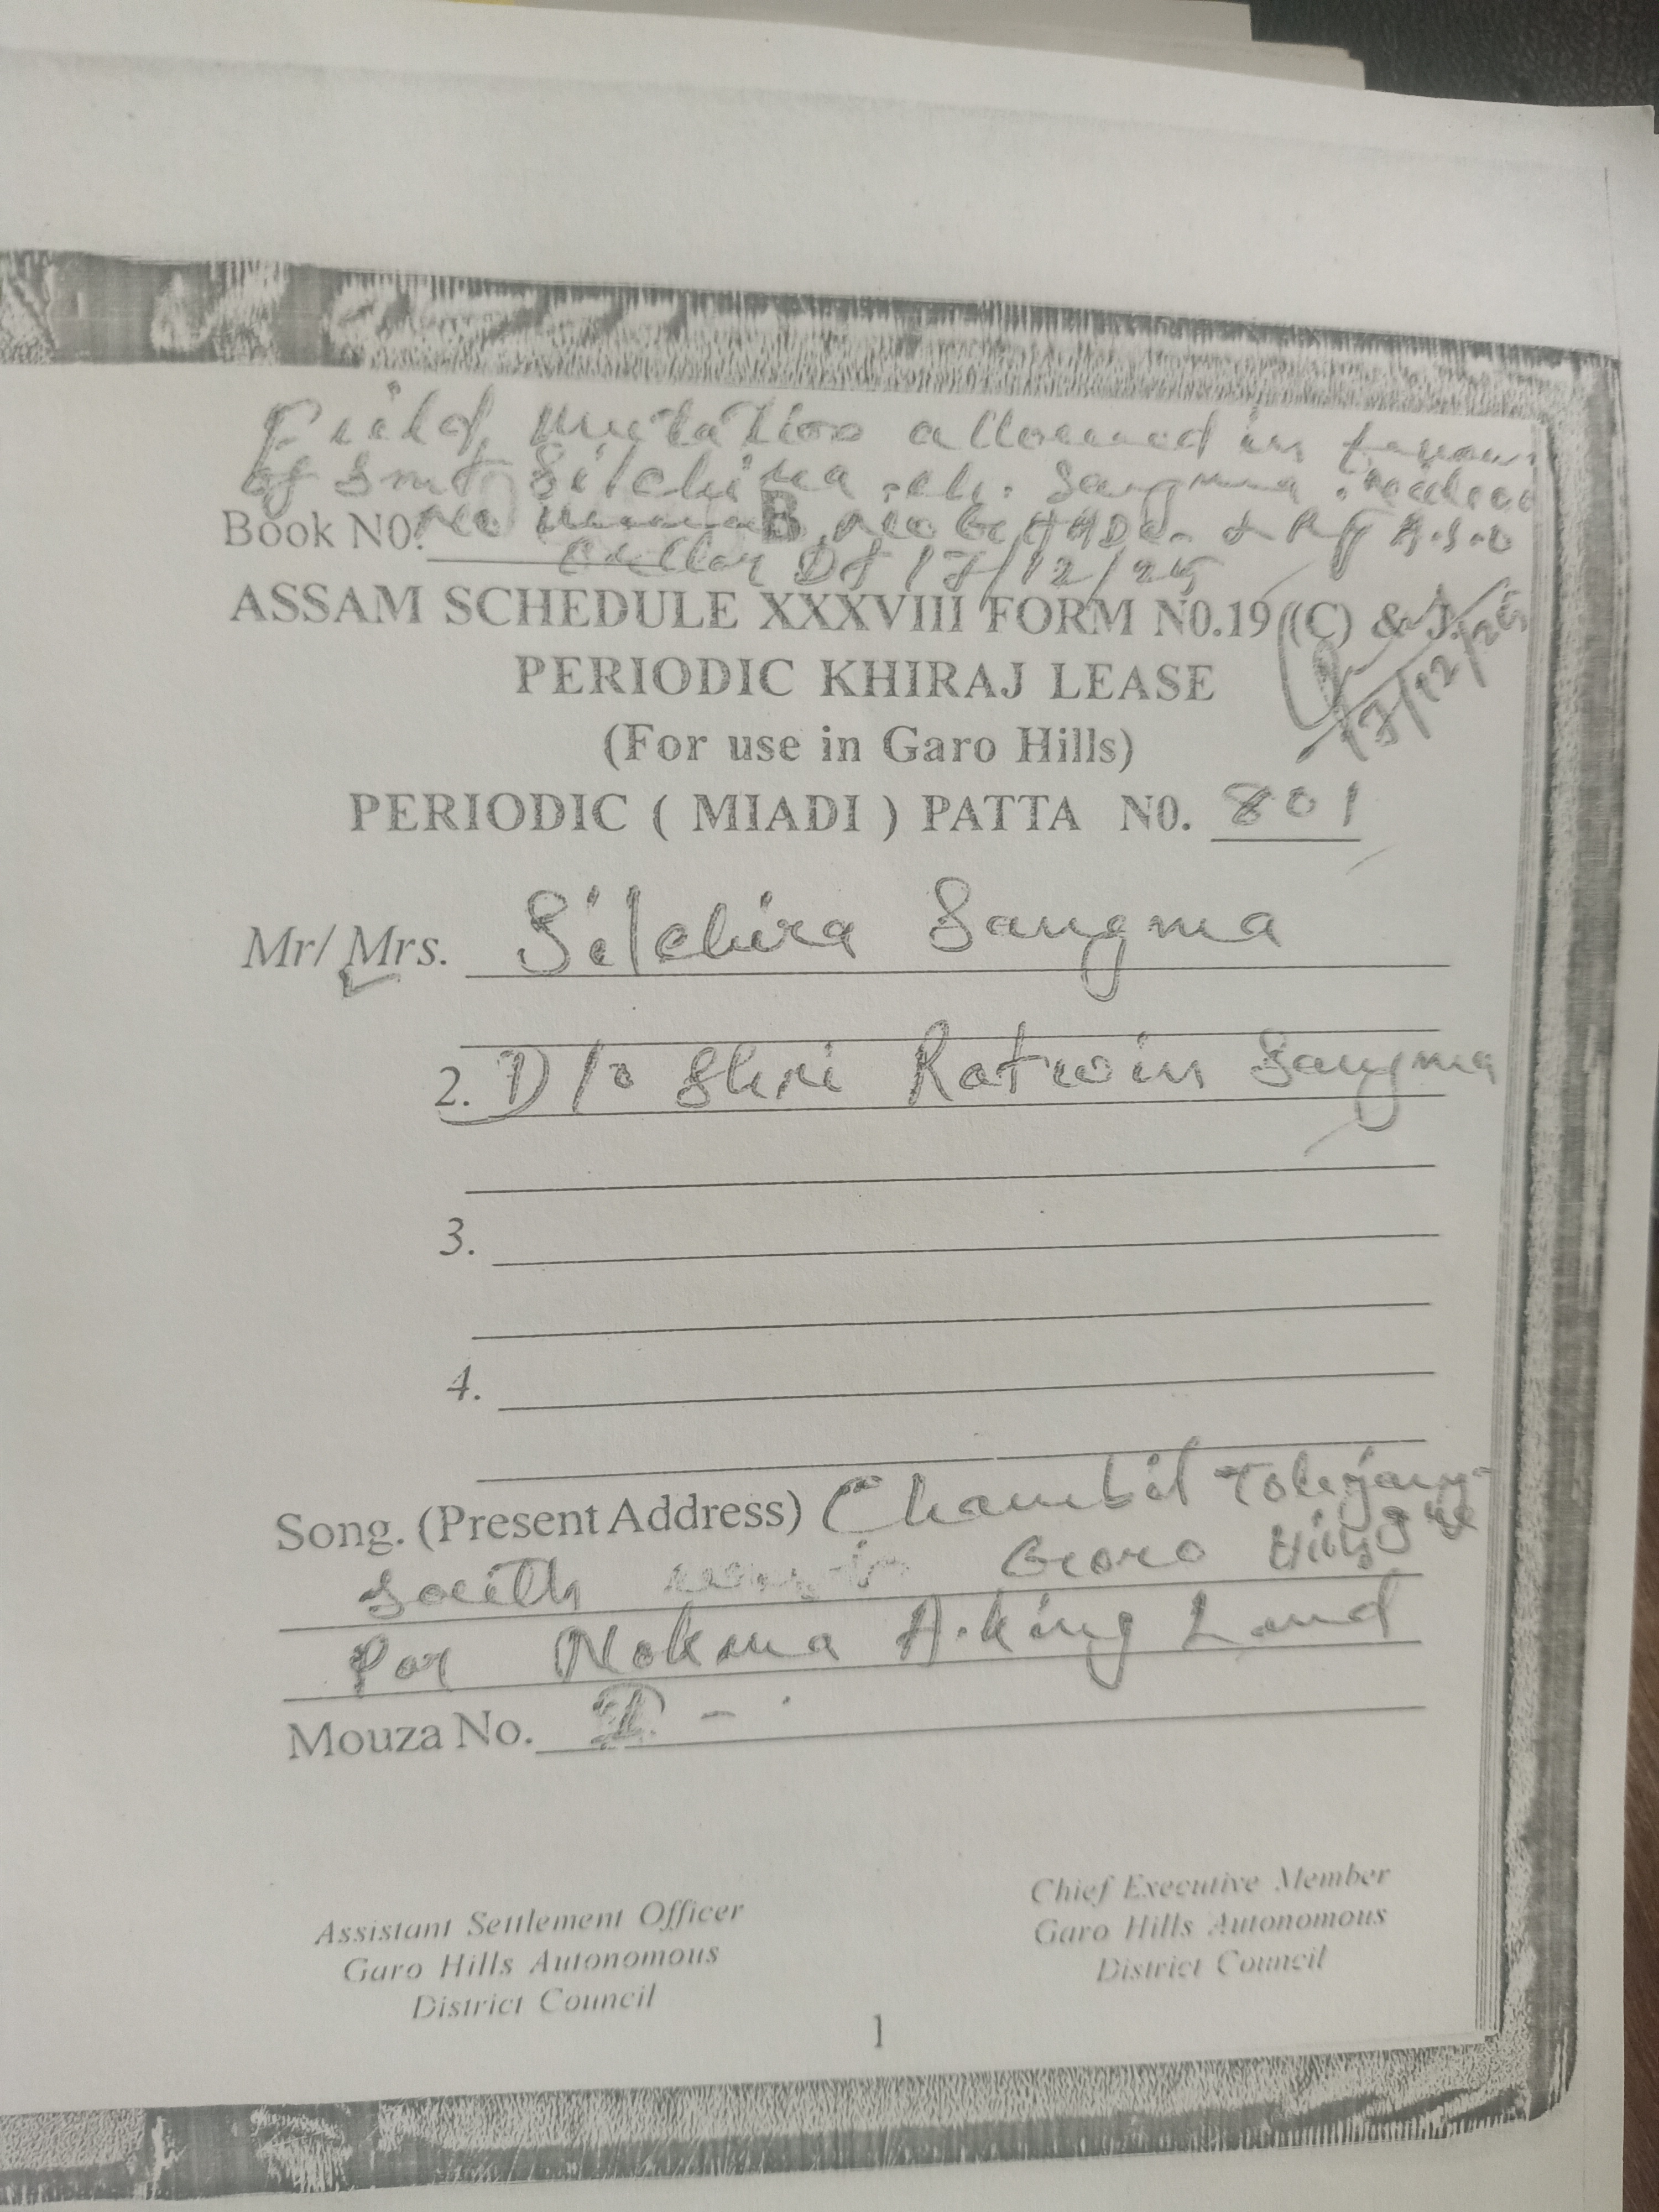 Feild Mutation allowed in favour
of Smt Silchira .ch. Sangma
Book N0. B
order Dt 17/12/25
ASSAM SCHEDULE XXXVIII FORM N0.19 (C) & J.
17/12/25
PERIODIC KHIRAJ LEASE
(For use in Garo Hills)
PERIODIC ( MIADI ) PATTA N0. 801
Mr/ Mrs. Silchira Sangma
2. D/o Shri Ratwin Sangma
3.
4.
Song. (Present Address) Chambil
South Garo Hills
Por Nokma A.king Land
Mouza No.
Assistant Settlement Officer
Garo Hills Autonomous
District Council
Chief Executive Member
Garo Hills Autonomous
District Council
1